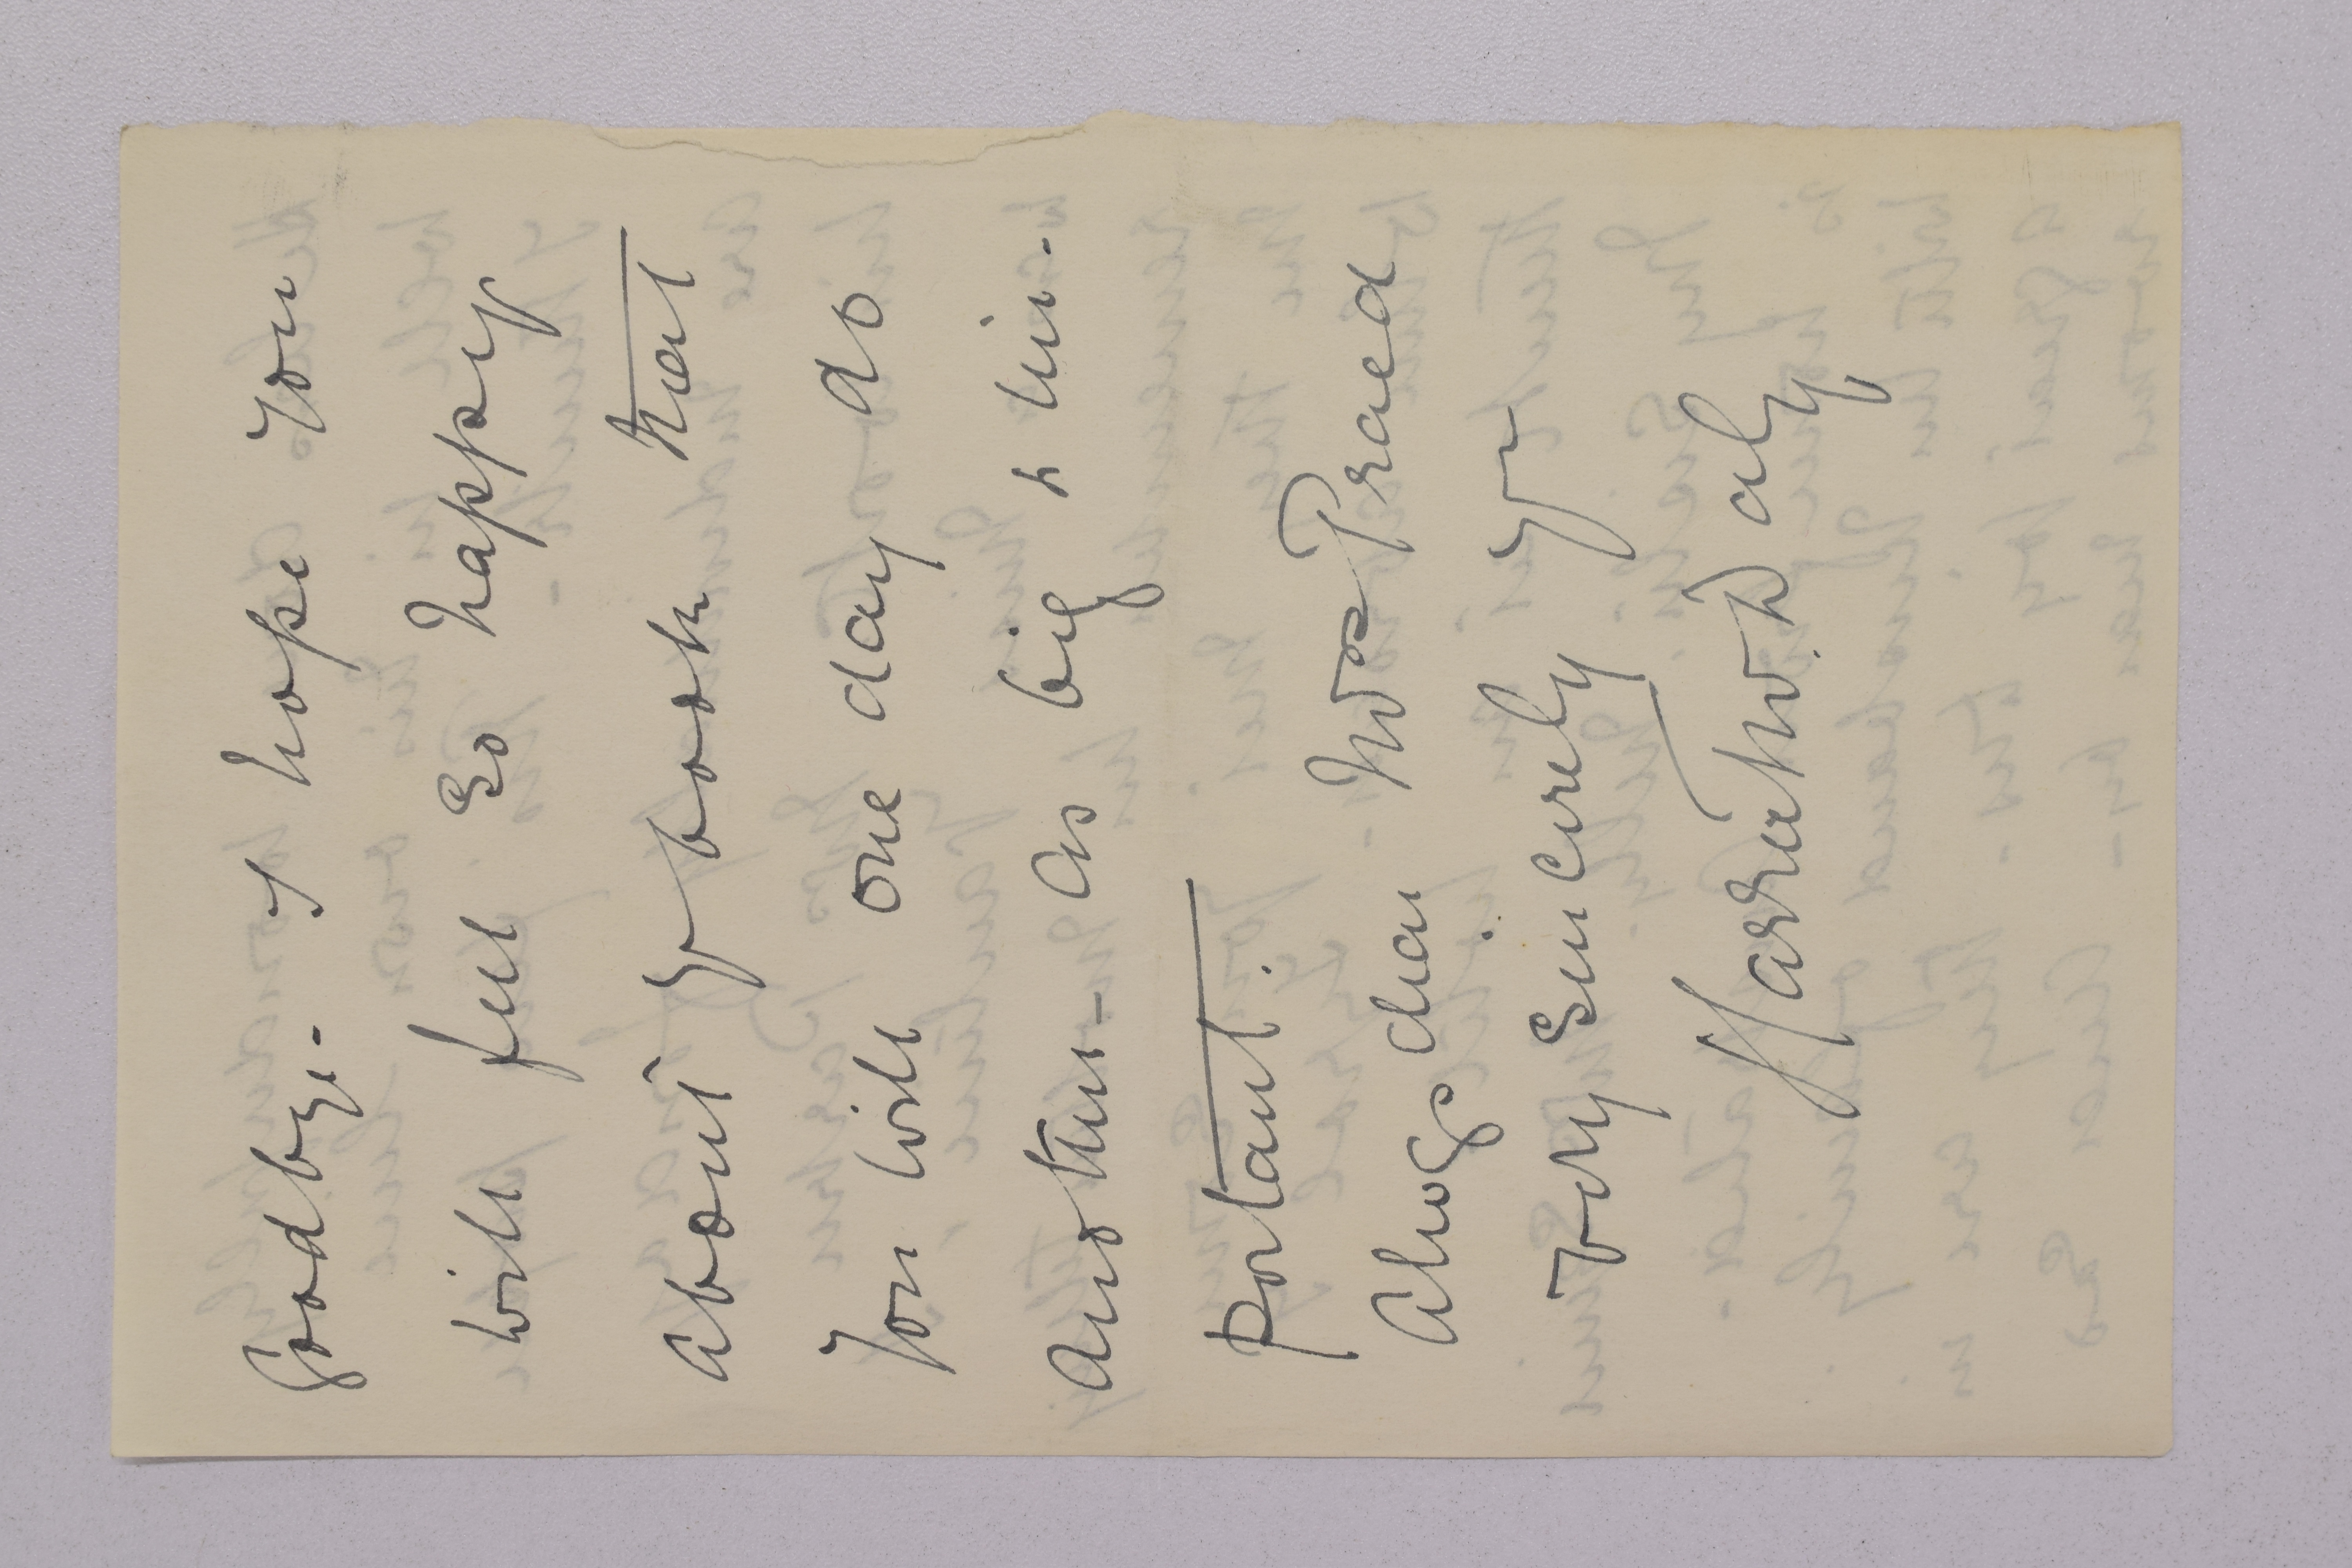 Goodbye - I hope you
will feel so happy
about yr book that
you will one day do
another - as big & im-
portant.
Always dear Mrs Praed
Very Sincerely yr
Harriet W. Daly